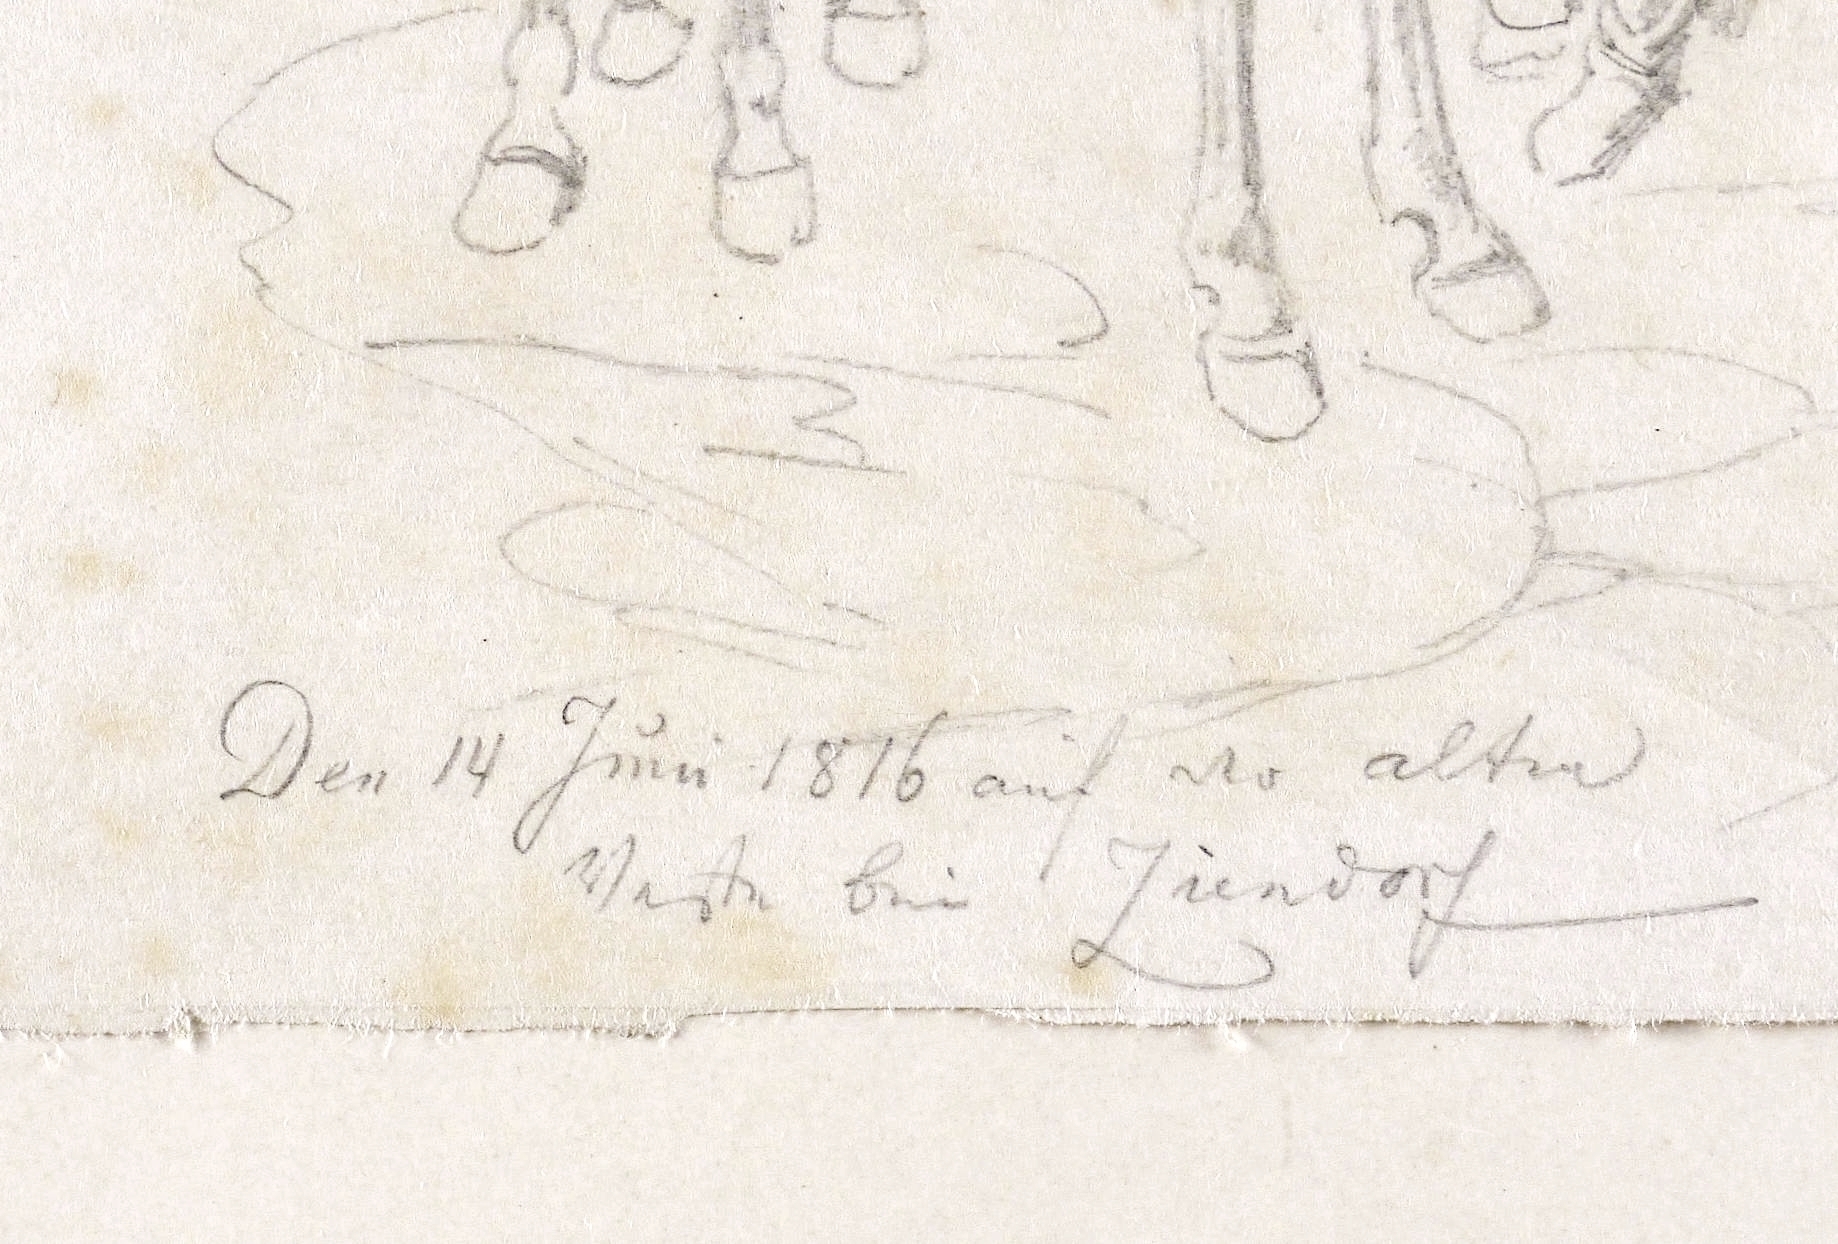 Den 14 Juni 1816 auf der alten
Veste bei Ziendorf